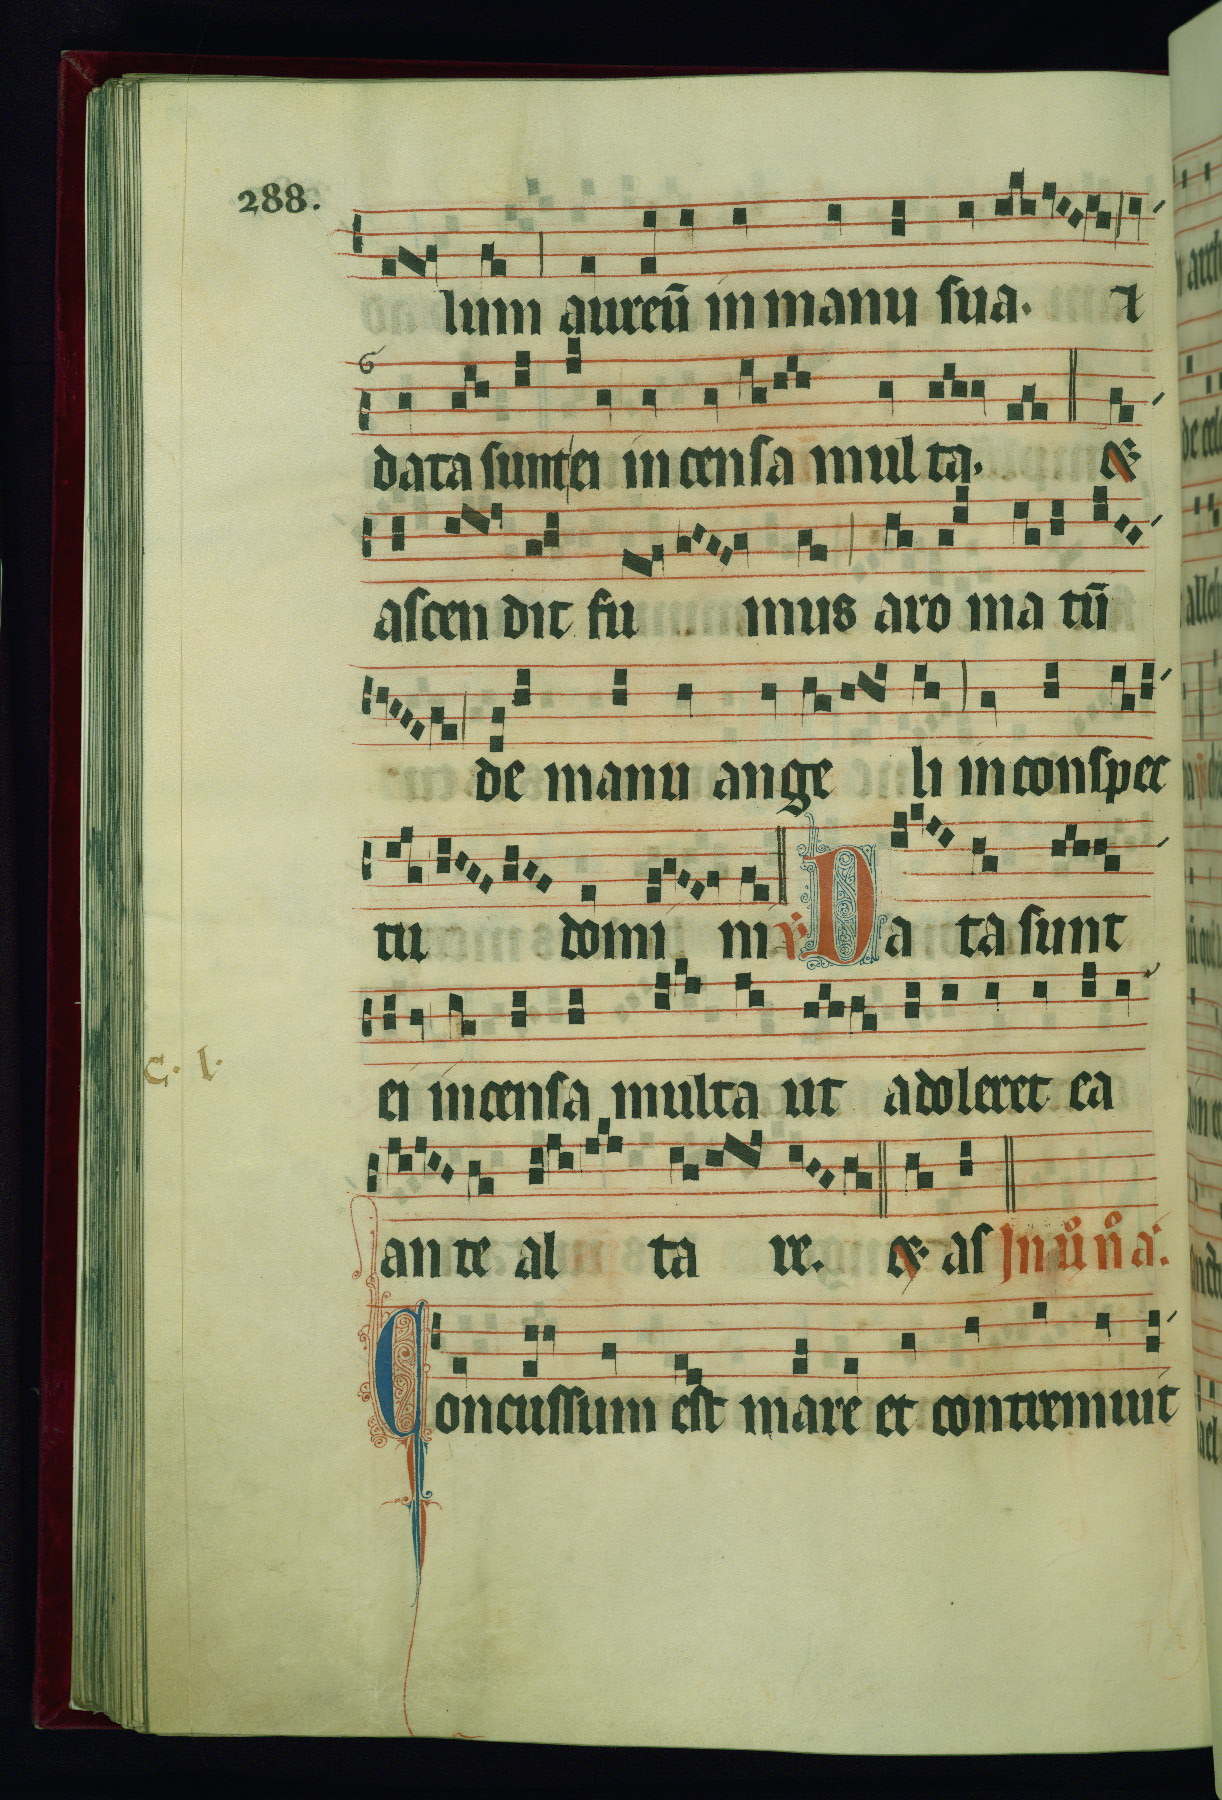 288.
lum aureū in manu sua. ⁊
data sunt ei in censa mul ta. &
ascen dit fu mus aro ma tū
de manu ange li in conspec
tu domi ni ℣ Da ta sunt
c. l.
ei incensa multa ut adoleret ea
ante al ta re. & as
Concussum est mare et contremuit